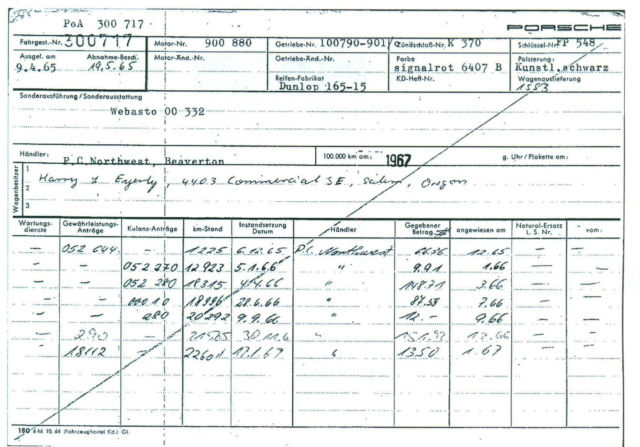 PoA 300 717
PORSCHE
Fahrgest.-Nr. 300717 Motor-Nr. 900 880 Getriebe-Nr. 100790-901/ Zündschloß-Nr. K 370 Schlüssel-Nr. FP 548
Ausgel. am Abnahme-Besch. Motor-Änd.-Nr. Getriebe-Änd.-Nr. Farbe Polsterung:
9.4.65 19.5.65 signalrot 6407 B Kunstl.schwarz
Reifen-Fabrikat KD-Heft-Nr. Wagenauslieferung
Dunlop 165-15 1553
Sonderausführung / Sonderausstattung
Webasto 00 332
Händler: P.C.Northwest, Beaverton 100.000 km am: 1967 g. Uhr / Plakette am:
Wagenbesitzer
1 Harry L Eyerly, 4403 Commercial SE, Salem, Oregon
2
3
Wartungsdienste Gewährleistungs-Anträge Kulanz-Anträge km-Stand Instandsetzung Datum Händler Gegebener Betrag angewiesen am Natural-Ersatz L. S. Nr. vom:
— 052 644 — 1225 6.12.65 P.C. Northwest 12.65 — —
— 052 270 12 923 5.1.66 " 9.91 1.66 — —
— 052 280 18315 4.4.66 " 148.71 3.66 — —
— 28.6.66 " 87.53 7.66 — —
— 280 20292 9.9.66 " 12.— 9.66 — —
— 290 — " 12.66 — —
18112 17.1.67 " 13.50 1.67
180 6 M 10. 64 (Fahrzeugkartei Kd.) Gl.